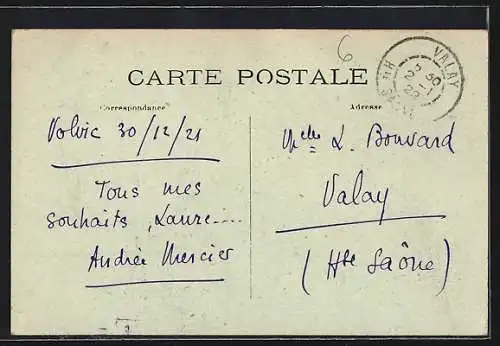 6
VALAY
CARTE POSTALE
Correspondance
Adresse
Volvic 30/12/21
Tous mes
souhaits, Laure....
Andrée Mercier
Melle L. Bouvard
Valay
(Hte Saône)